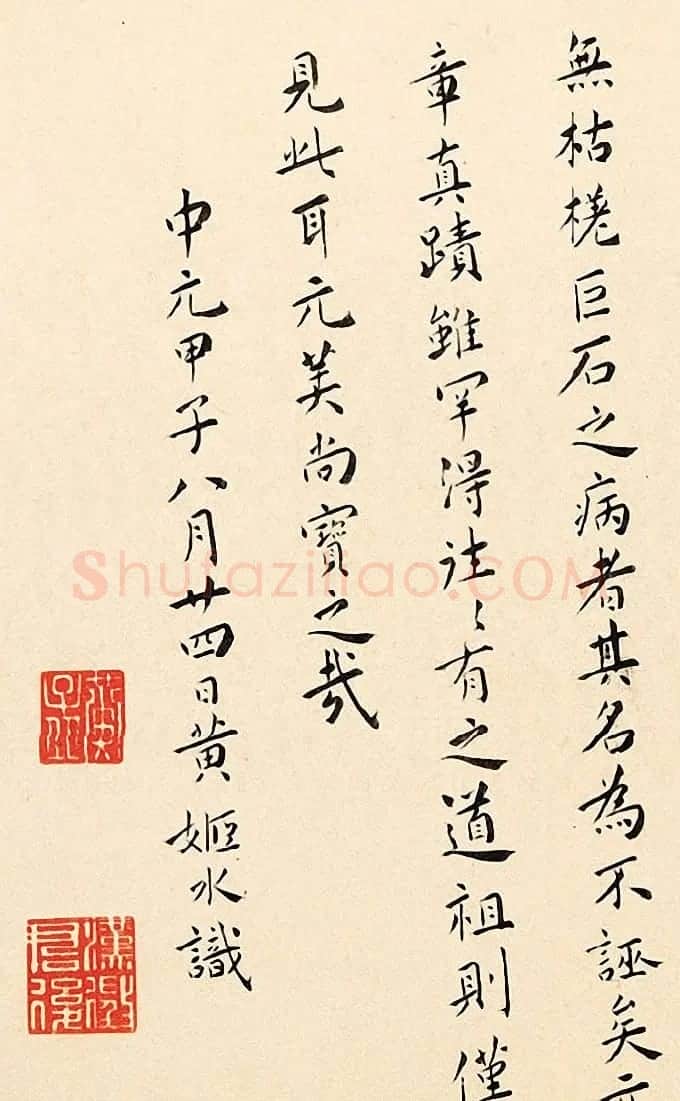 無枯槎巨石之病者其名為不誣矣
章真蹟雖罕得往〻有之道祖則僅
見此耳元美尚寶之哉
中元甲子八月廿四日黄姬水識
Shufaziliao.COM